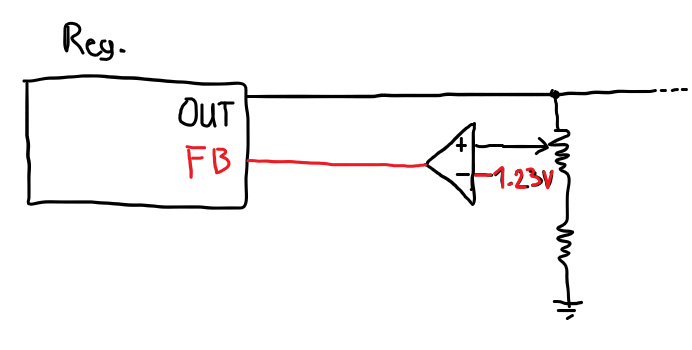 Reg.
OUT
FB
+
- 1.23V